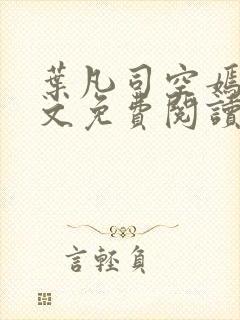 葉凡司空嫣
文免費閱讀
言輕負